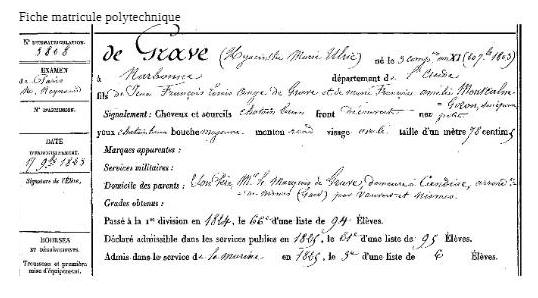 Fiche matricule polytechnique
N° D'IMMATRICULATION.
3808
EXAMEN
de Paris
M. Reynaud
N° D'ADMISSION.
DATE
17 9bre 1823
Signature de l'Élève.
BOURSES
ET DÉGRÈVEMENTS.
Trousseau et première
mise d'équipement.
de Grave (Hyacinthe Marie Ulric) né le 3 comp. an XI (20 7bre 1803)
à Narbonne département de l'Aude
fils de Jean François Louis Ange de Grave et de Marie Françoise Amélie Montcalm
Gozon,
Signalement : Cheveux et sourcils chatain brun front découvert nez petit
yeux chatain brun bouche moyenne menton rond visage ovale taille d'un mètre 78 centim.
Marques apparentes :
Services militaires :
Domicile des parents : Mr. le Marquis de Grave, demeure à Candiac,
(Gard) par Vauvert et Nismes.
Grades obtenus :
Passé à la 1re division en 1824, le 66e d'une liste de 94 Élèves.
Déclaré admissible dans les services publics en 1825, le 61e d'une liste de 95 Élèves.
Admis dans le service de la marine en 1825, le 3e d'une liste de 6 Élèves.